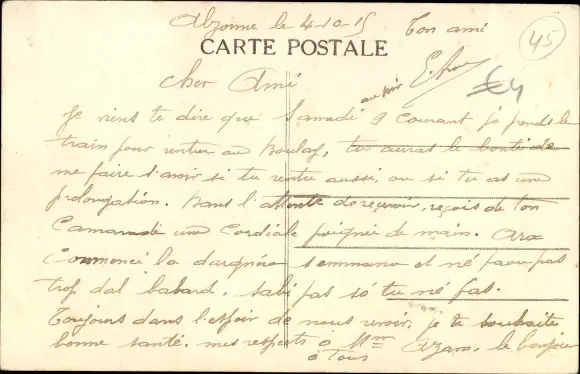 Alzonne le 4-10-15 Ton ami
45
CARTE POSTALE
cher Ami
au revoir
£4
Je viens te dire que Samedi 9 Courant je prends le
train pour rentrer au Boulag, tu auras la bonté de
me faire s'avoir si tu rentre aussi, ou si tu as une
prolongation. Dans l'attente de reçevoir, reçois de ton
Camarade une Cordiale poignée de main. Ara
Coumenci la dargnéro semmano et
trop dal labard, sabi pas so tu ne fas.
Toujours dans l'espoir de nous revoir, je te souhaite
bonne santé. mes respects a Mme Azam, le bonjour
à tous